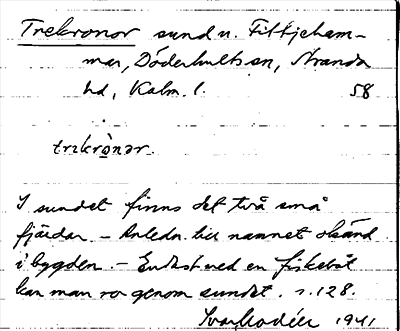 Trekronor sund n. Fittjeham-
mar, Döderhults sn, Stranda
hd, Kalm. l. 58
trıkrònor.
I sundet finns det två små
fjärdar. – Anledn. till namnet okänd
i bygden. – Endast med en fiskebåt
kan man ro genom sundet. s. 128.
Ivar Modéer 1941